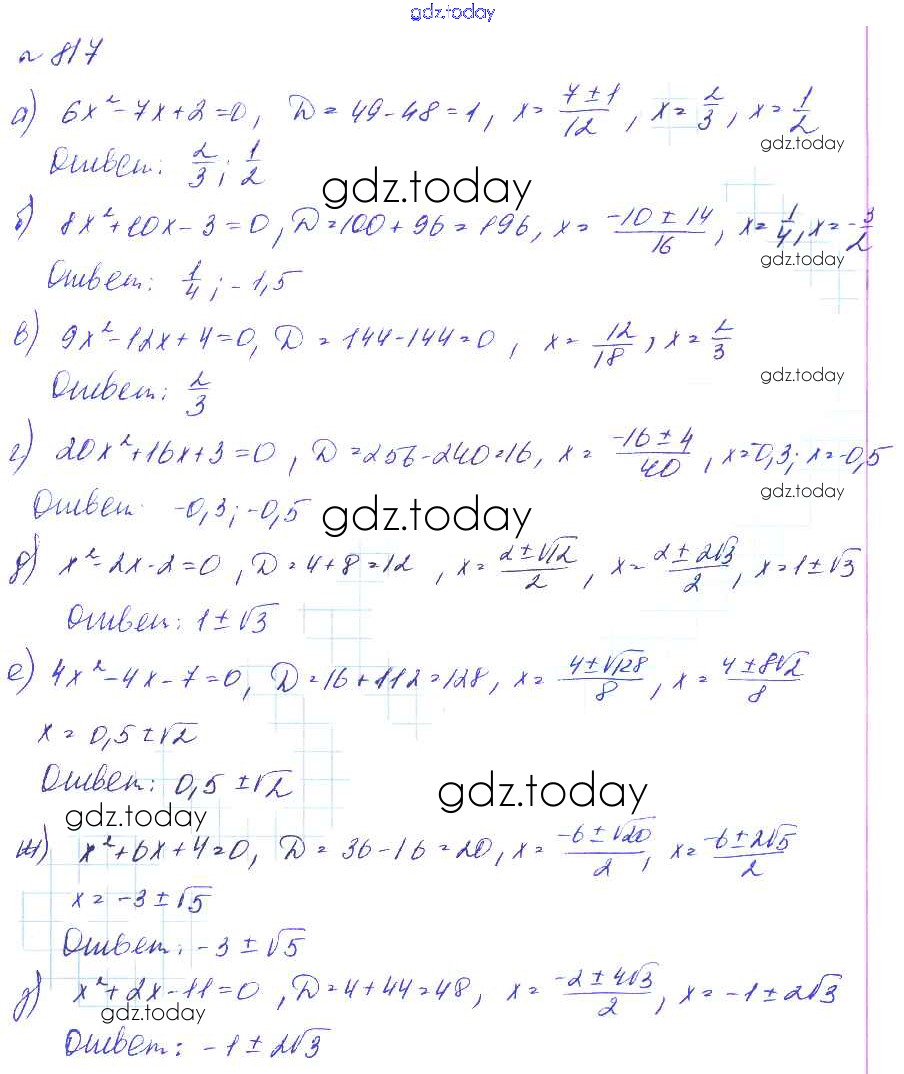 gdz.today
№ 817
а) 6x² - 7x + 2 = 0, D = 49 - 48 = 1, x = (7 ± 1)/12, x = 2/3, x = 1/2
gdz.today
Ответ: 2/3; 1/2
gdz.today
б) 8x² + 10x - 3 = 0, D = 100 + 96 = 196, x = (-10 ± 14)/16, x = 1/4, x = -3/2
gdz.today
Ответ: 1/4; -1,5
в) 9x² - 12x + 4 = 0, D = 144 - 144 = 0, x = 12/18, x = 2/3
gdz.today
Ответ: 2/3
г) 20x² + 16x + 3 = 0, D = 256 - 240 = 16, x = (-16 ± 4)/40, x = -0,3; x = -0,5
gdz.today
Ответ: -0,3; -0,5
gdz.today
д) x² - 2x - 2 = 0, D = 4 + 8 = 12, x = (2 ± √12)/2, x = (2 ± 2√3)/2, x = 1 ± √3
Ответ: 1 ± √3
е) 4x² - 4x - 7 = 0, D = 16 + 112 = 128, x = (4 ± √128)/8, x = (4 ± 8√2)/8
x = 0,5 ± √2
Ответ: 0,5 ± √2
gdz.today
gdz.today
ж) x² + 6x + 4 = 0, D = 36 - 16 = 20, x = (-6 ± √20)/2, x = (-6 ± 2√5)/2
x = -3 ± √5
Ответ: -3 ± √5
д) x² + 2x - 11 = 0, D = 4 + 44 = 48, x = (-2 ± 4√3)/2, x = -1 ± 2√3
gdz.today
Ответ: -1 ± 2√3